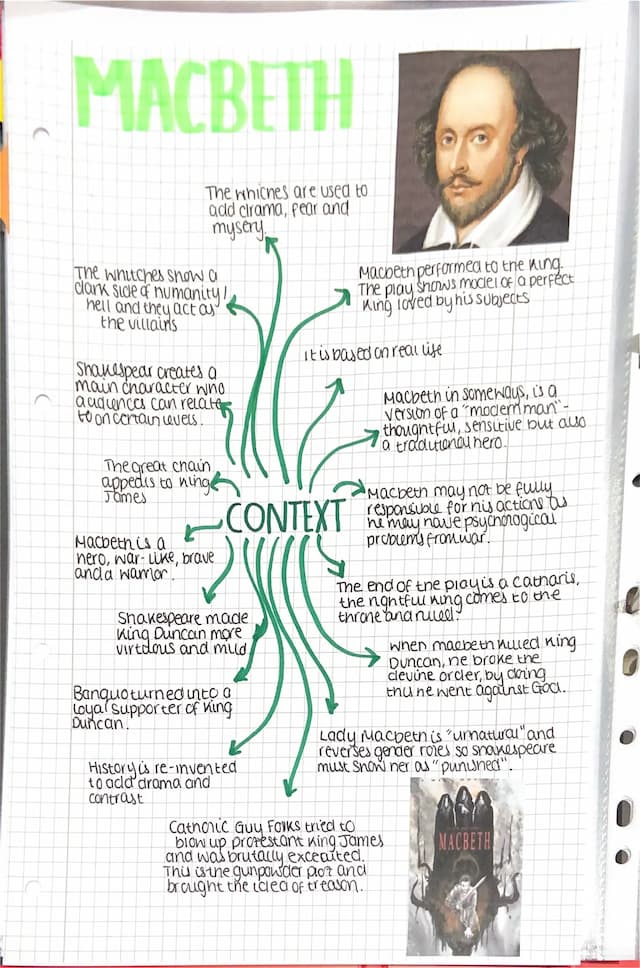 MACBETH
The whiches are used to
add drama, fear and
mysery.
The whitches show a
dark side of humanity/
hell and they act as
the villains
Macbeth performed to the King.
The play shows model of a perfect
King loved by his subjects
It is based on real life
Shakespear creates a
main character who
audiences can relate
to on certain levels.
Macbeth in someways, is a
version of a "modern man"-
thoughtful, sensitive but also
a traditional hero.
The great chain
appeals to King
James
Macbeth may not be fully
responsible for his actions as
he may have psychological
problems from war.
CONTEXT
Macbeth is a
hero, war-like, brave
and a warrior.
The end of the play is a catharis,
the rightful King comes to the
throne and ruled.
Shakespeare made
King Duncan more
virtuous and mild
When macbeth killed King
Duncan, he broke the
devine order, by doing
this he went against God.
Banquo turned into a
loyal supporter of King
Duncan.
Lady Macbeth is "urnatural" and
reverses gender roles so shakespeare
must show her as "punished".
History is re-invented
to add drama and
contrast
Catholic Guy Folks tried to
blow up protestant King James
and was brutally exceuted.
This is the gunpowder plot and
brought the idea of treason.
MACBETH